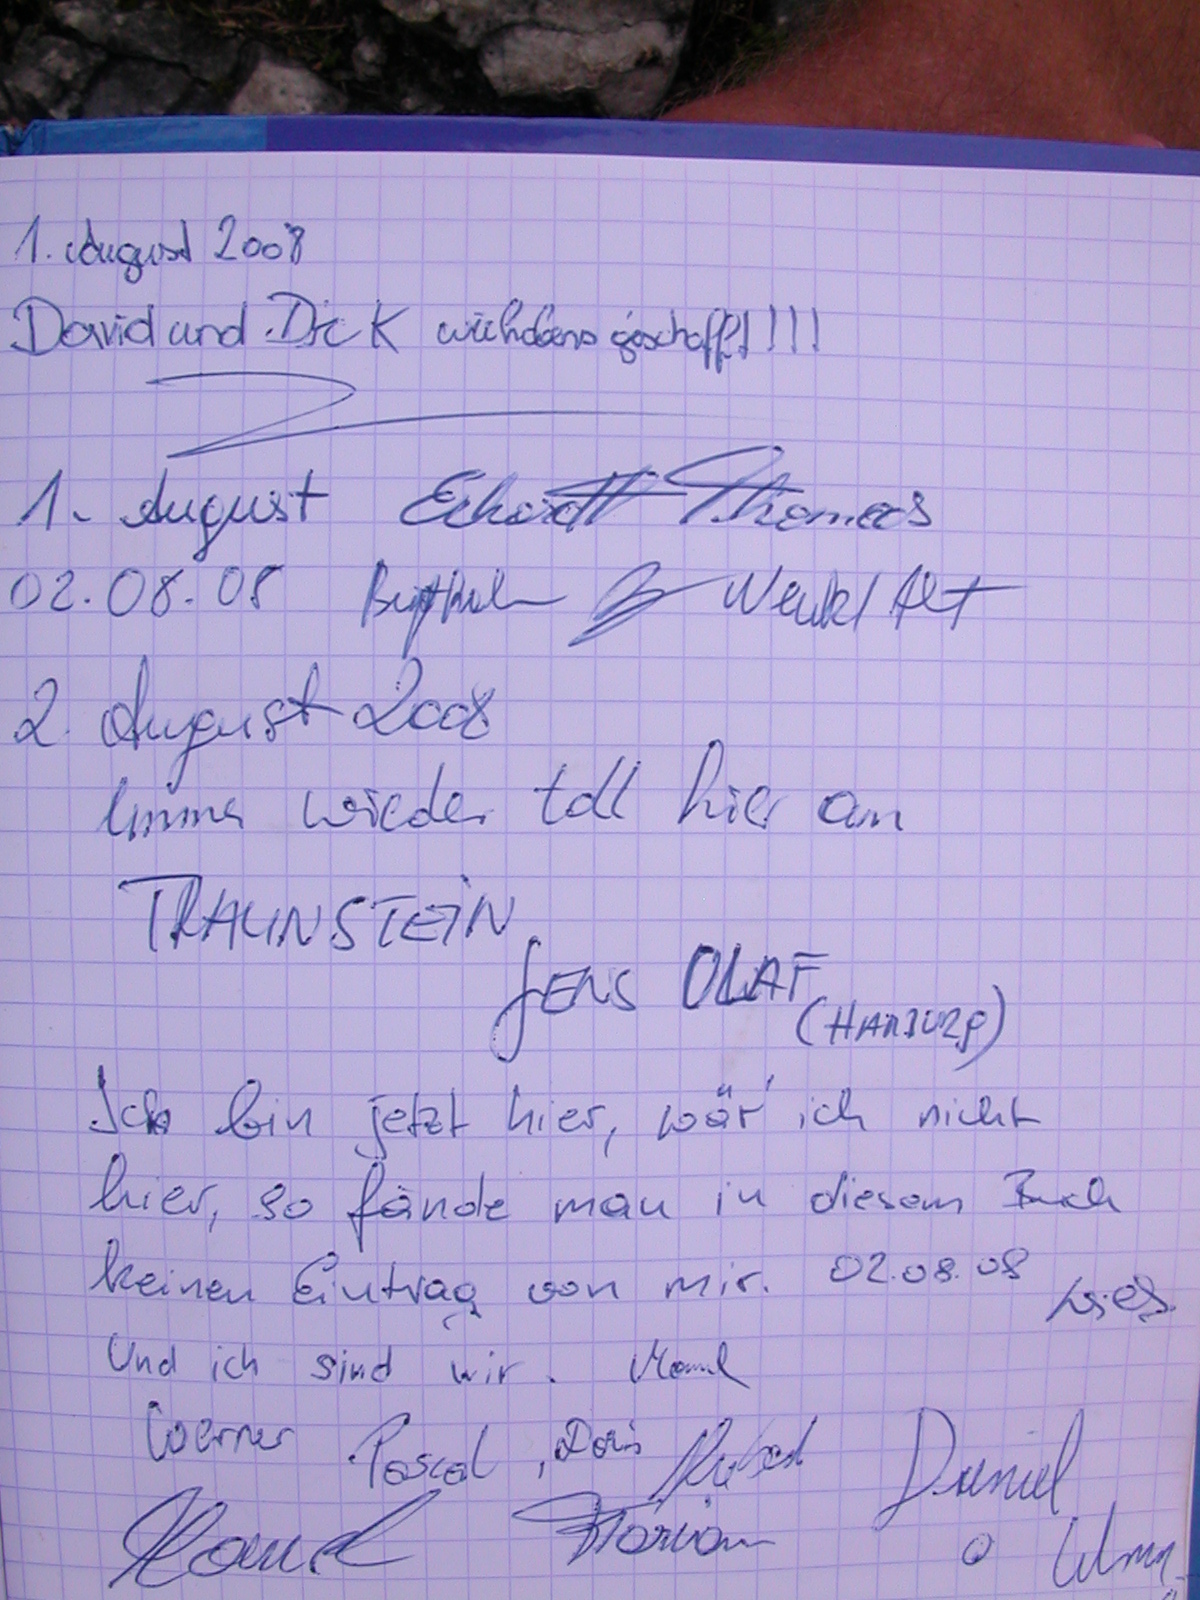 1. August 2008
David und Dick wir habens geschafft!!!
1. August Eckardt Thomas
02.08.08
2. August 2008
Immer wieder toll hier am
TRAUNSTEIN
JENS OLAF
(HAMBURG)
Ich bin jetzt hier, wär' ich nicht
hier, so fände man in diesem Buch
keinen Eintrag von mir. 02.08.08
Und ich sind wir.
Werner Pascal, Doris Hubert Daniel
Florian